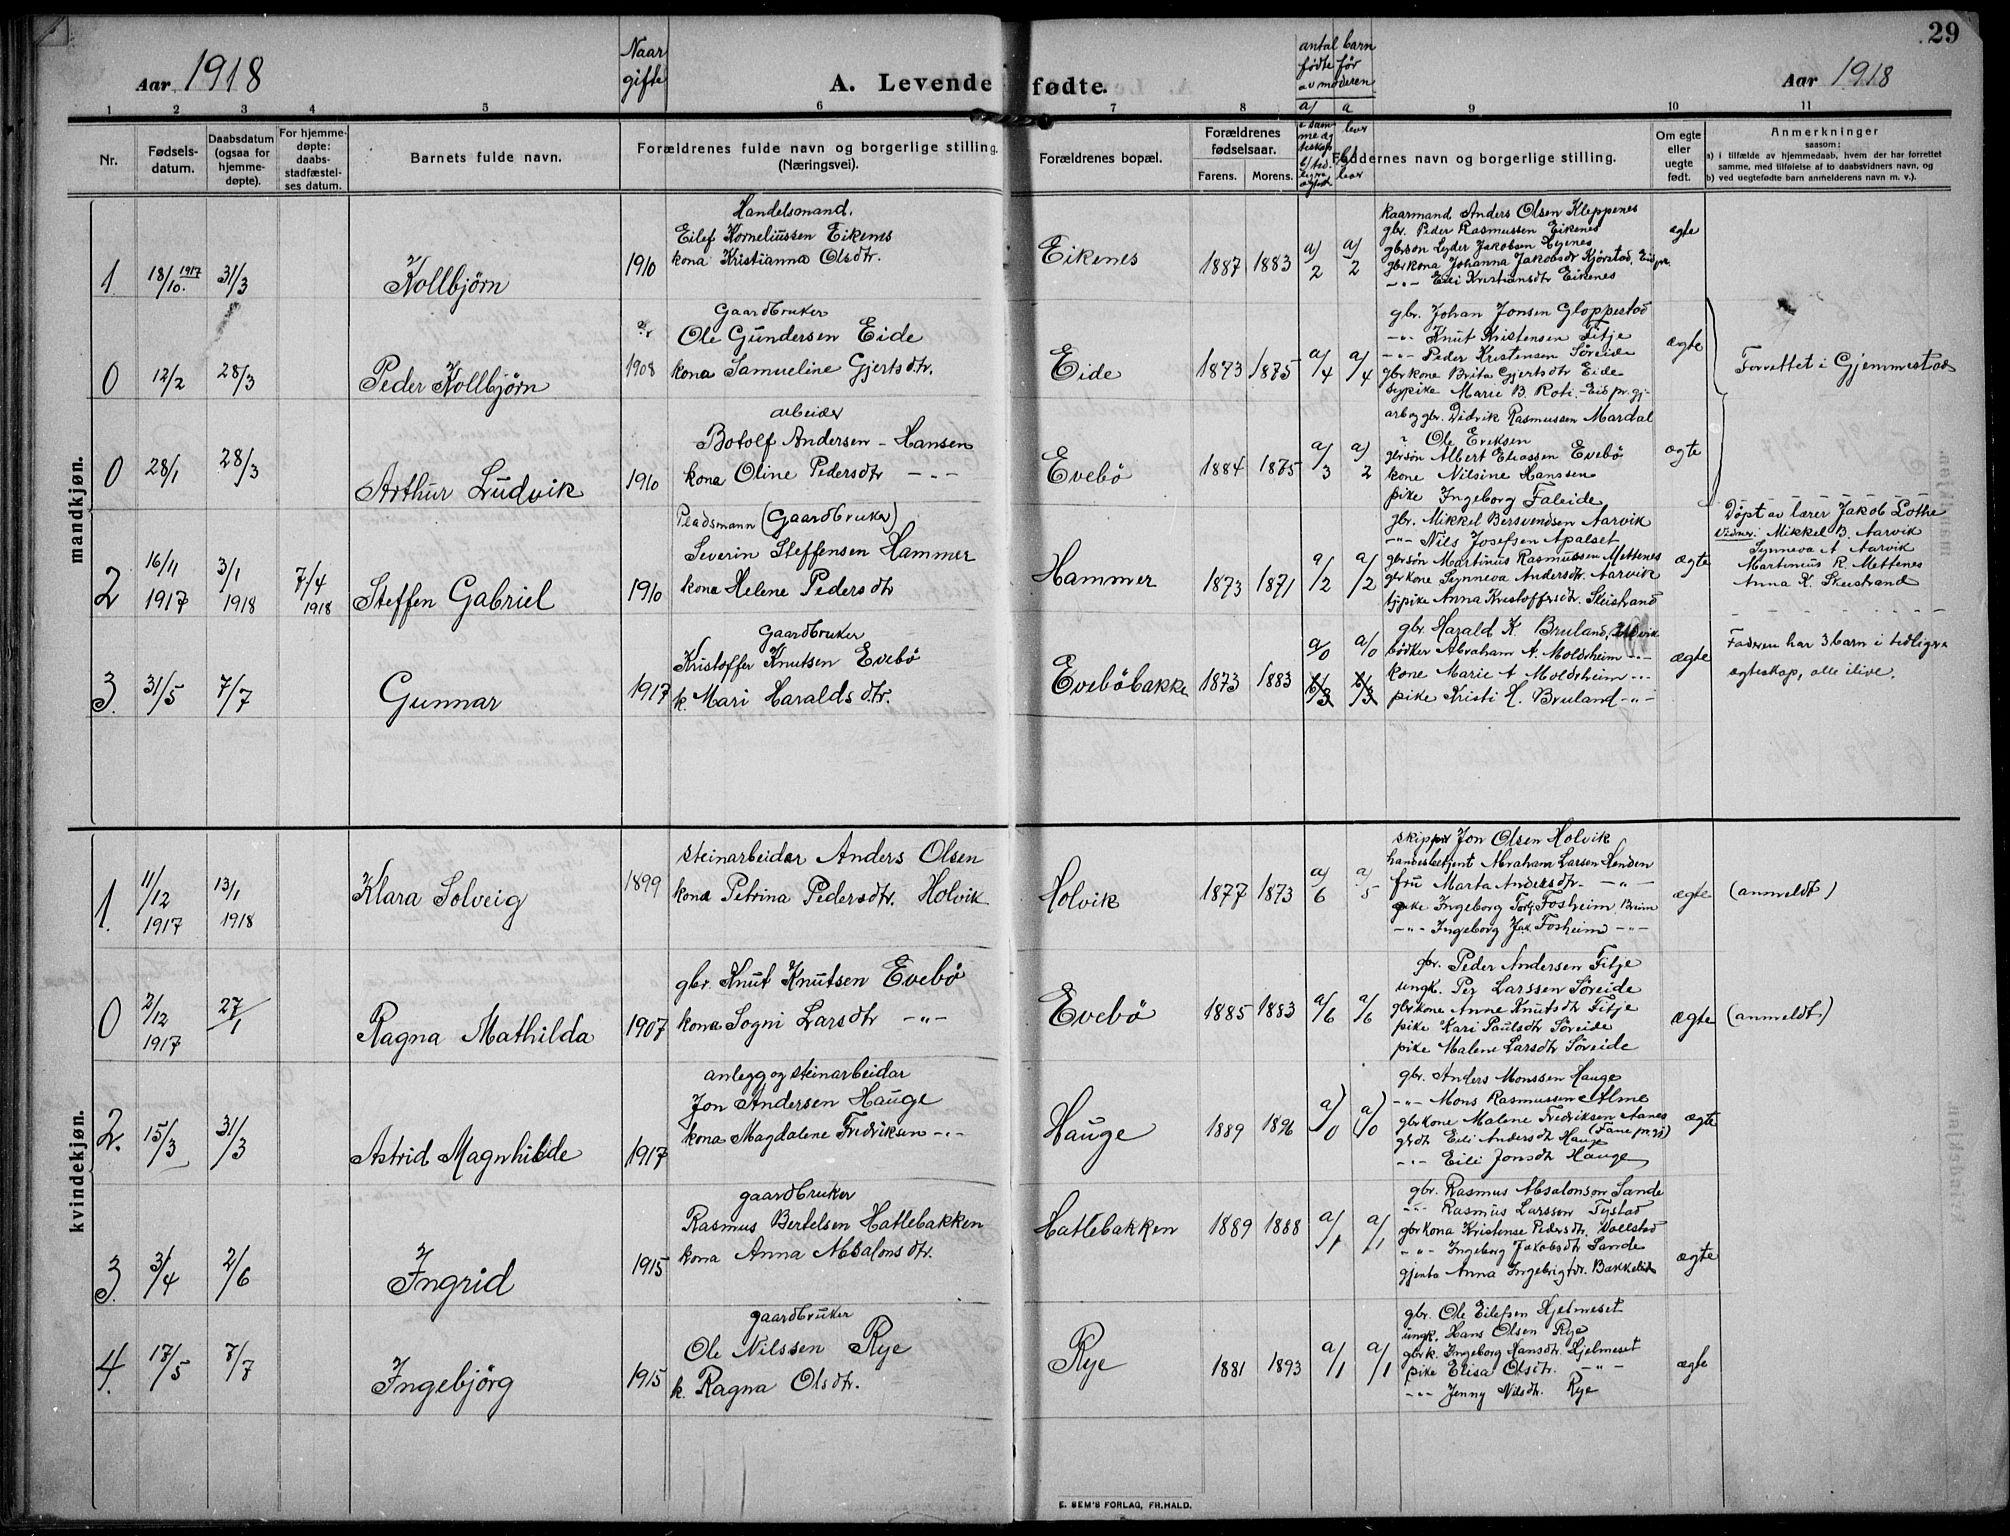 29
Aar 1918
Naar gifte
A. Levende fødte.
antal barn
fødte før
av moderen
Aar 1918
1 2 3 4 5 6 7 8 9 10 11
Nr.
Fødsels-
datum.
Daabsdatum
(ogsaa for
hjemme-
døpte).
For hjemme-
døpte:
daabs-
stadfæstel-
ses datum.
Barnets fulde navn.
Forældrenes fulde navn og borgerlige stilling.
(Næringsvei).
Forældrenes bopæl.
Forældrenes
fødselsaar.
Farens. Morens.
a/ a
lever
Faddernes navn og borgerlige stilling.
Om egte
eller
uegte
født.
Anmerkninger
saasom:
a) i tilfælde av hjemmedaab, hvem der har forrettet
samme, med tilføielse af to daabsvidners navn, og
b) ved uegtefødte barn anmelderens navn m. v.).
mandkjøn.
1 18/10. 1917 31/3 Kollbjørn 1910
Handelsmand.
Eilef Korneliussen Eikenes
kona Kristianna Olsdtr.
Eikenes 1887 1883 a/2 a/2
kaarmand Anders Olsen Kleppenes
gbr. Peder Rasmussen Eikenes
gbrsøn Lyder Jakobsen
gbrkona Johanna Jakobsdtr Kjørstad, Eid pr.
-"- Eili Kristiansdtr Eikenes
ægte
0 12/2 28/3 Peder Kollbjørn 1908
Gaardbruker
Ole Gundersen Eide
kona Samueline Gjertsdtr.
Eide 1873 1875 a/4 a/4
gbr. Johan Jonsen Gloppestad
-"- Knut Kristensen Fitje
-"- Peder Kristensen Søreide
gbrkone Brita Gjertsdtr Eide
sypike Marie B. Roti - Eid pr. gj.
ægte
Forrettet i Gjemmestad
0 28/1 28/3 Arthur Ludvik 1910
arbeider
Botolf Andersen - Hansen
kona Oline Pedersdtr -"-
Evebø 1884 1875 a/3 a/2
arb og gbr. Didrik Rasmussen Mardal
? Ole Eriksen
gbrsøn Albert Eliassen Evebø
kone Nilsine Hanssen
pike Ingeborg Faleide
ægte
2 16/11 1917 3/1 1918 7/4 1918 Steffen Gabriel 1910
Pladsmann (Gaardbruker)
Severin Steffensen Hammer
kona Helene Pedersdtr
Hammer 1873 1871 a/2 a/2
gbr. Mikkel Bersvendsen Aarvik
-"- Nils Josefsen Apalset
gbrsøn Martinus Rasmussen Mettenes
gbrkone Synneva Andersdtr. Aarvik
tjpike Anna Kristoffersdtr. Skeistrand
ægte
Døpt av lærer Jakob Lothe
Vidner: Mikkel B. Aarvik
Synneva A Aarvik
Martinius R. Mettenes
Anna K. Skeistrand
3. 31/5 7/7 Gunnar 1917
Gaardbruker
Kristoffer Knutsen Evebø
k. Mari Haraldsdtr.
Evebøbakke 1873 1883 a/0 a/0 b/3 b/3
gbr. Harald K. Bruland,
bødker Abraham A. Moldrheim -"-
kone Marie A Moldrheim -"-
pike Kristi H. Bruland -"-
ægte
Faderen har 3 barn i tidligre
ægteskap, alle ilive.
kvindekjøn.
1. 11/12 1917 13/1 1918 Klara Solveig 1899
steinarbeidar Anders Olsen
kona Petrina Pedersdtr. Holvik
Holvik 1877 1873 a/6 a/5
skipper Jon Olsen Holvik
handesbetjent Abraham Larsen Henden
fru Marta Andersdtr. -"-
pike Ingeborg Torg. Fosheim Breim
-"- Ingeborg Jak. Fosheim -"-
ægte (anmeldt)
0 2/12 1917 27/1 Ragna Mathilda 1907
gbr. Knut Knutsen Evebø
kona Sogni Larsdtr -"-
Evebø 1885 1883 a/6 a/6
gbr. Peder Andersen Fitje
ungk. Per Larssen Søreide
gbrkone Anne Knutsdtr Fitje
pike Kari Paulsdtr Søreide
pike Malene Larsdtr Søreide
ægte (anmeldt)
2. 15/3 31/3 Astrid Magnhilde 1917
anlegg og steinarbeidar
Jon Andersen Hauge
kona Magdalene Fredriksen -"-
Hauge 1889 1896 a/0 a/0
gbr. Anders Monssen Hauge
-"- Mons Rasmussen Alme
gbrkone Malene Fredriksen Aanes
gbdtr Eili Andersdtr Hauge
-"- Eili Jonsdtr Hauge
ægte
3. 3/4 2/6 Ingrid 1915
gaardbruker
Rasmus Bertelsen Hatlebakken
kona Anna Absalonsdtr.
Hatlebakken 1889 1888 a/1 a/1
gbr. Rasmus Absalonson Sande
-"- Rasmus Larssen Tystad
gbrkona Kristense Pedersdtr. Vollstad
-"- Ingeborg Jakobsdtr Sande
gjenta Anna Ingebrigtdr. Bakkelid
ægte
4. 17/5 7/7 Ingebjørg 1915
gaardbruker
Ole Nilssen Rye
k. Ragna Olsdtr.
Rye 1881 1893 a/1 a/1
gbr. Ole Eilefsen Hjelmeset
ungk. Hans Olsen Rye
gbrk. Ingeborg Hansdtr. Hjelmeset
pike Elisa Olsdtr. -"-
-"- Jenny Nilsdtr. Rye
ægte
E. SEM'S FORLAG, FR.HALD.